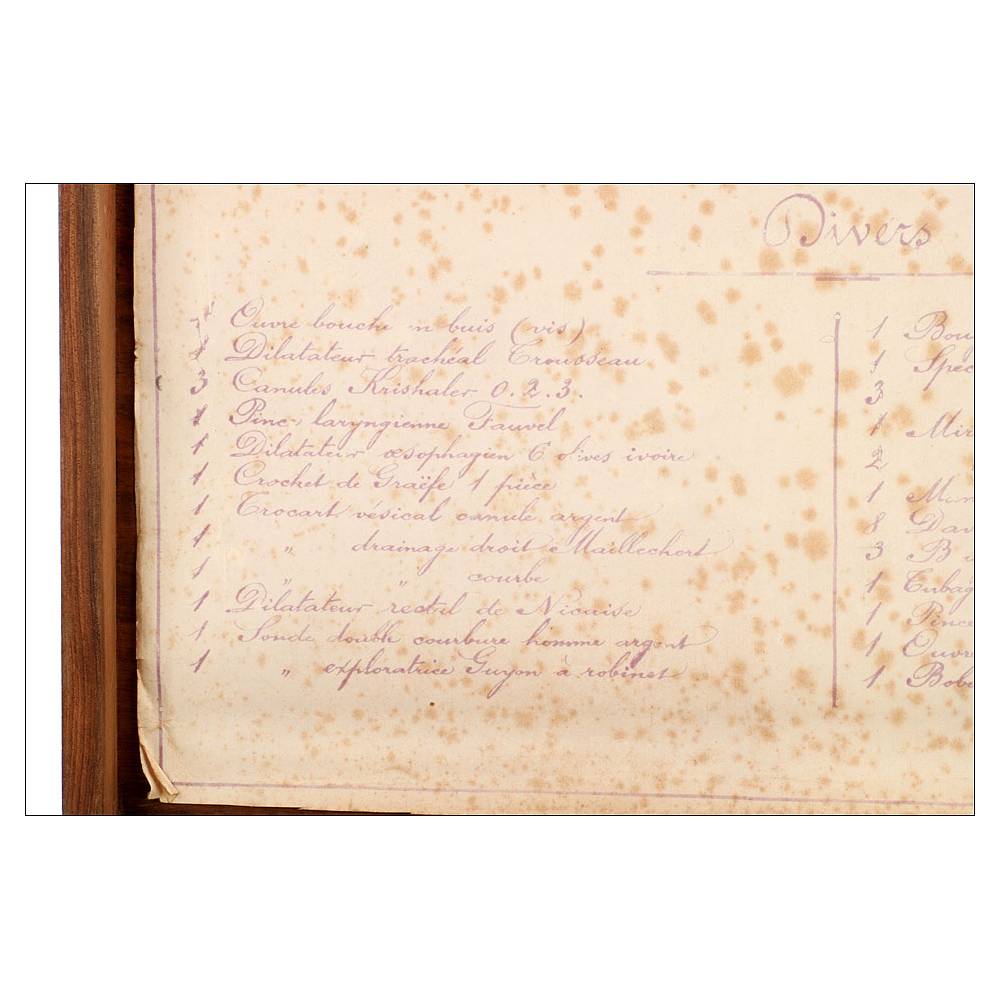 Divers
1 Ouvre bouche en buis (vis)
1 Dilatateur trachéal Trousseau
3 Canules Krishaber 0.2.3.
1 Pince laryngienne Fauvel
1 Dilatateur œsophagien 6 olives ivoire
1 Crochet de Graëfe 1 pièce
1 Trocart vésical canule argent
1 " drainage droit Maillechort
1 " " courbe
1 Dilatateur rectal de Nicaise
1 Sonde double courbure homme argent
1 " exploratrice Guyon à robinet
1 Bou
1 Spec
3
1 Mir
2
1
8 Dav
3
1 Tubag
1 Pince
1 Ouvr
1 Bob